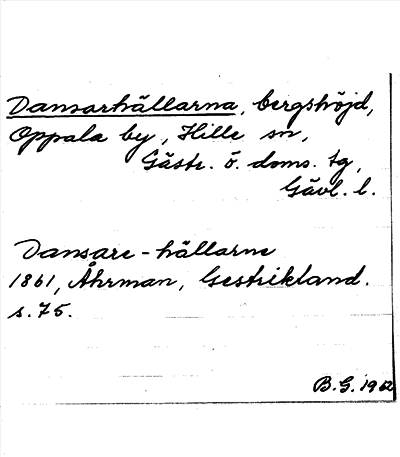 Dansarhällarna, bergshöjd,
Oppala by, Hille sn,
Gästr. ö. doms. tg,
Gävl. l.
Dansare-hällarne
1861, Åhrman, Gestrikland.
s. 75.
B.G. 1962